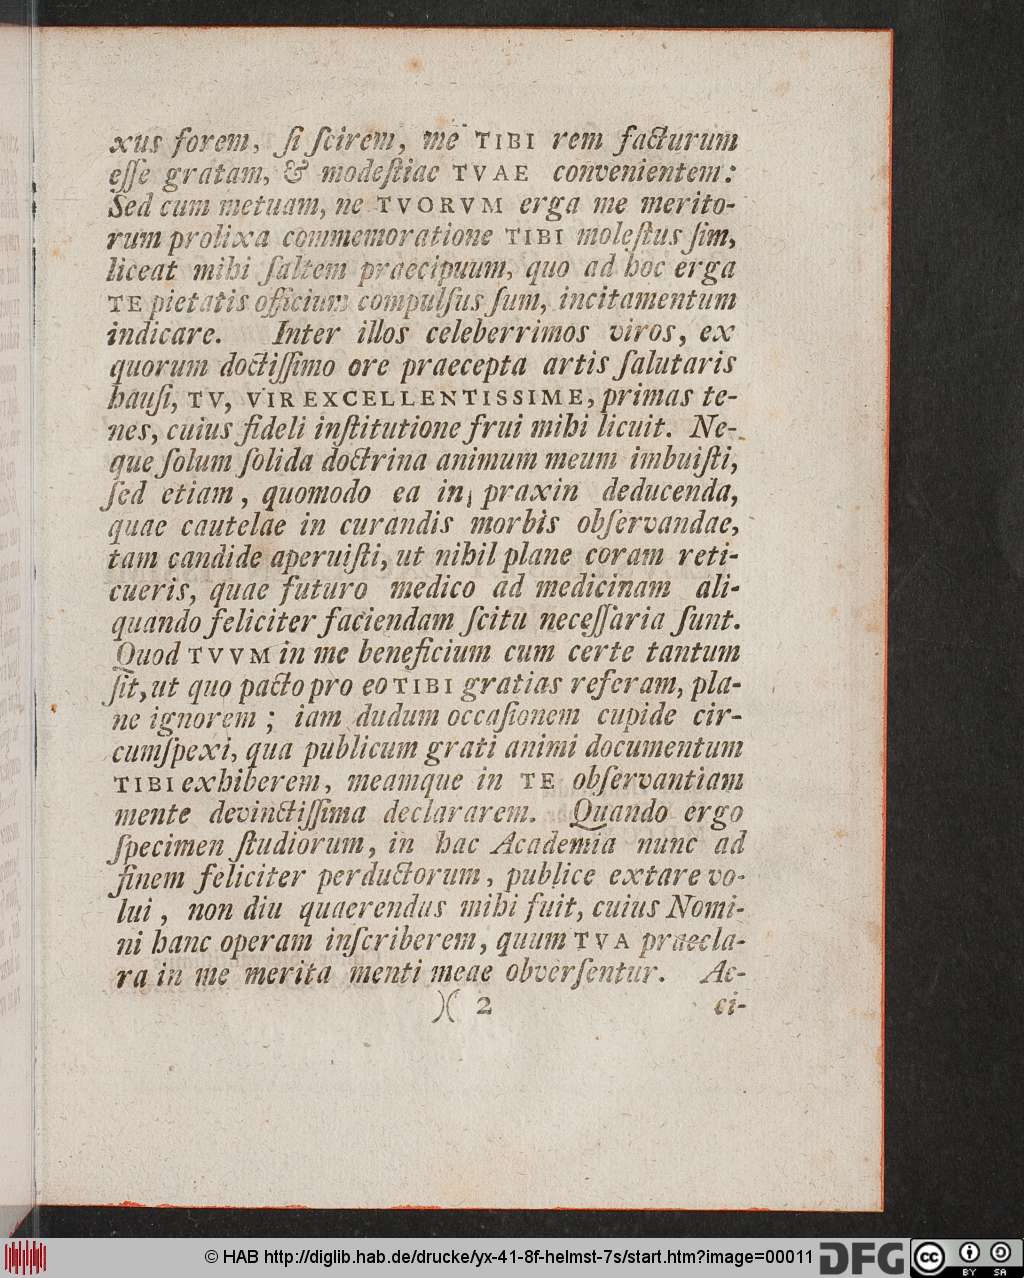 xus forem, ſi ſcirem, me TIBI rem facturum
eſſe gratam, & modeſtiae TVAE convenientem:
Sed cum metuam, ne TVORVM erga me merito-
rum prolixa commemoratione TIBI moleſtus ſim,
liceat mihi ſaltem praecipuum, quo ad hoc erga
TE pietatis officium compulſus ſum, incitamentum
indicare. Inter illos celeberrimos viros, ex
quorum doctiſſimo ore praecepta artis ſalutaris
hauſi, TV, VIR EXCELLENTISSIME, primas te-
nes, cuius fideli inſtitutione frui mihi licuit. Ne-
que ſolum ſolida doctrina animum meum imbuiſti,
ſed etiam, quomodo ea in praxin deducenda,
quae cautelae in curandis morbis obſervandae,
tam candide aperuiſti, ut nihil plane coram reti-
cueris, quae futuro medico ad medicinam ali-
quando feliciter faciendam ſcitu neceſſaria ſunt.
Quod TVVM in me beneficium cum certe tantum
ſit, ut quo pacto pro eo TIBI gratias referam, pla-
ne ignorem; iam dudum occaſionem cupide cir-
cumſpexi, qua publicum grati animi documentum
TIBI exhiberem, meamque in TE obſervantiam
mente devinctiſſima declararem. Quando ergo
ſpecimen ſtudiorum, in hac Academia nunc ad
finem feliciter perductorum, publice extare vo-
lui, non diu quaerendus mihi fuit, cuius Nomi-
ni hanc operam inſcriberem, quum TVA praecla-
ra in me merita menti meae obverſentur. Ac-
)( 2 ci-
© HAB http://diglib.hab.de/drucke/yx-41-8f-helmst-7s/start.htm?image=00011 DFG cc BY SA